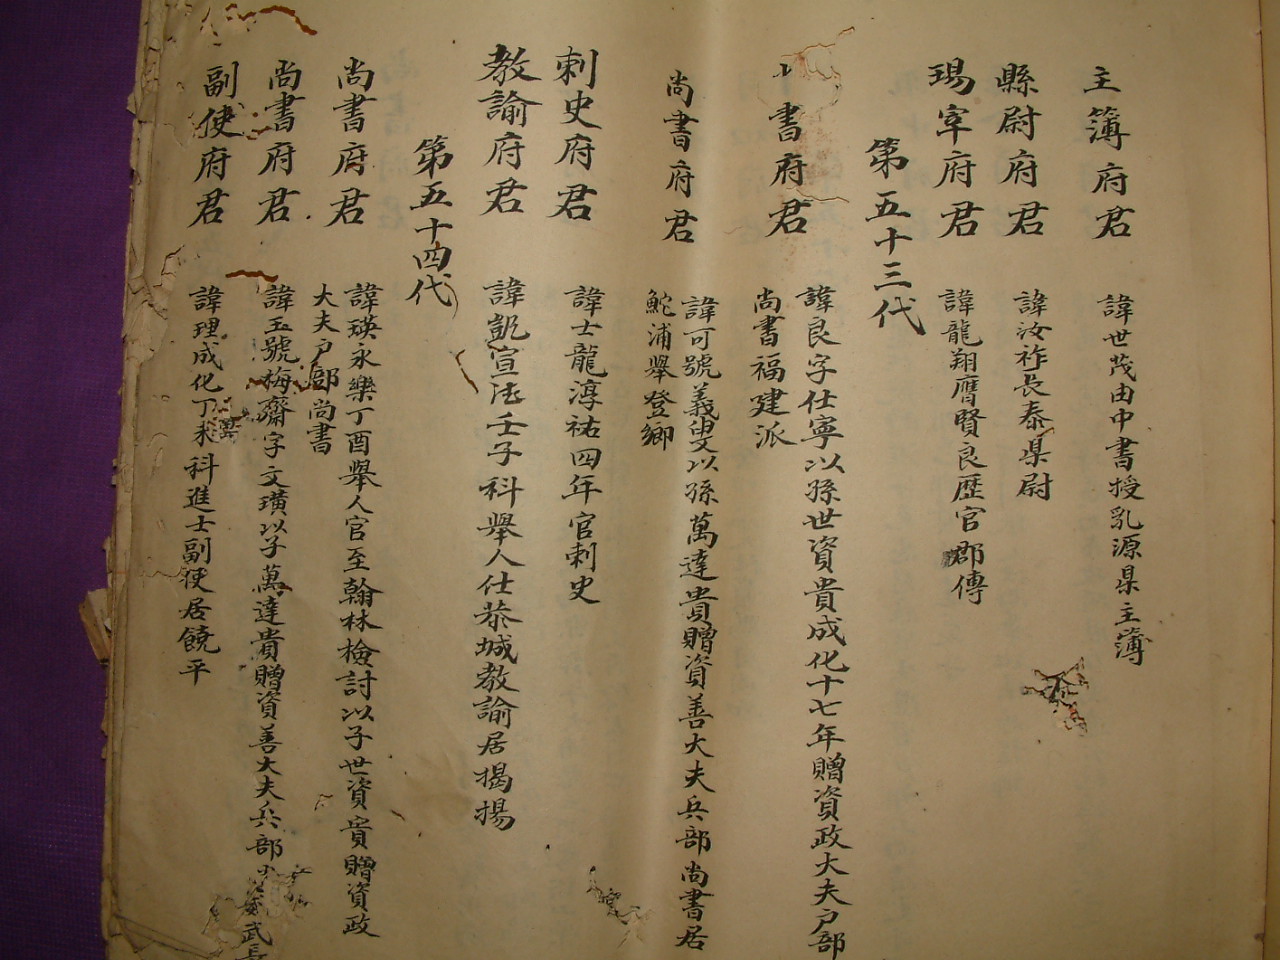 主簿府君 諱世茂由中書授乳源県主簿
縣尉府君 諱汝祚長泰県尉
宰府君 諱龍翔膺賢良歷官郡傳
第五十三代
書府君 諱良字仕寧以孫世資貴成化十七年贈資政大夫戶部
尚書福建派
尚書府君 諱可號義叟以孫萬達貴贈資善大夫兵部尚書居
鮀浦舉登鄉
刺史府君 諱士龍淳祐四年官刺史
教諭府君 諱凱宣德壬子科舉人仕恭城教諭居揭揚
第五十四代
尚書府君 諱瑛永樂丁酉舉人官至翰林檢討以子世資貴贈資政
大夫戶部尚書
尚書府君 諱玉號梅齋字文璜以子萬達貴贈資善大夫兵部
副使府君 諱理成化丁未科進士副使居饒平